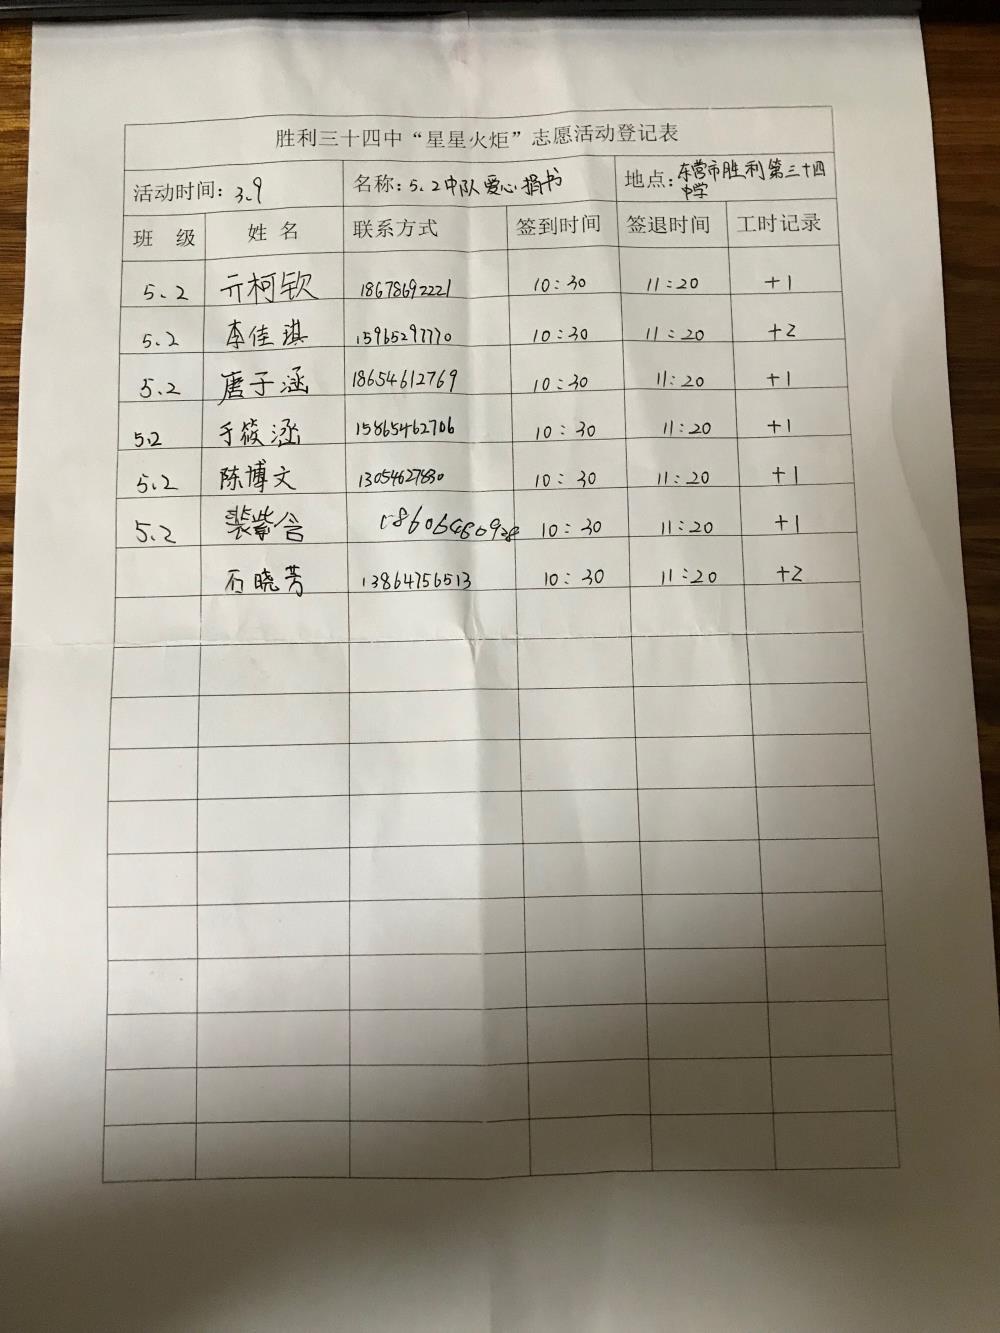 胜利三十四中“星星火炬”志愿活动登记表
活动时间：3.9 名称：5.2中队爱心捐书 地点：东营市胜利第三十四中学
班 级 姓 名 联系方式 签到时间 签退时间 工时记录
5.2 亓柯钦 18678692221 10:30 11:20 +1
5.2 李佳琪 15965297770 10:30 11:20 +2
5.2 唐子涵 18654612769 10:30 11:20 +1
5.2 于筱涵 15865462706 10:30 11:20 +1
5.2 陈博文 13054627830 10:30 11:20 +1
5.2 裴紫含 10:30 11:20 +1
石晓芳 13864756513 10:30 11:20 +2